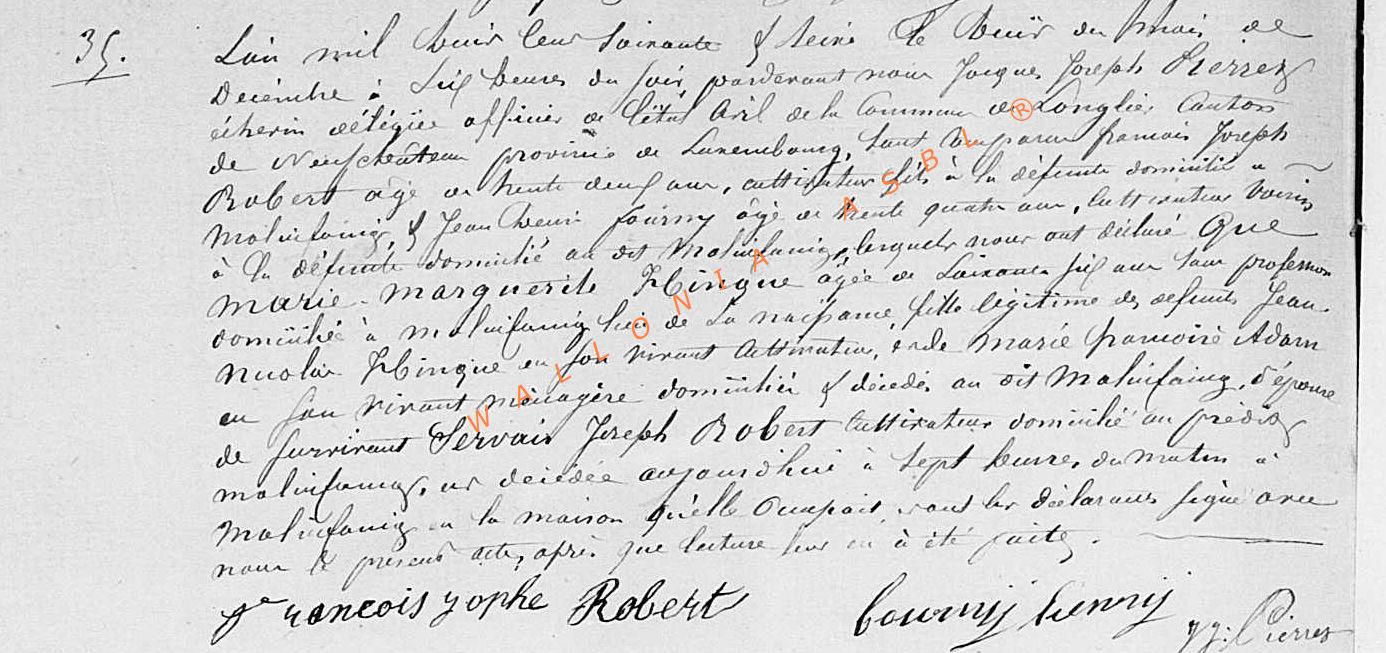 35.
L'an mil huit cent soixante & seize le huit du mois de
Décembre à six heures du soir, pardevant nous Jacques Joseph Pierret
échevin délégué officier de l'état civil de la Commune de Longlier Canton
de Neufchâteau province de Luxembourg, sont comparus francois Joseph
Robert âgé de trente deux ans, cultivateur fils à la défunte domicilié à
Molinfaing, & Jean henri fourny âgé de trente quatre ans, cultivateur voisin
à la défunte domicilié au dit Molinfaing, lesquels nous ont déclaré Que
Marie-Marguerite Hinque âgée de soixante six ans sans profession
domiciliée à Molinfaing lieu de sa naissance, fille légitime des défunts Jean-
Nicolas Hinque en son vivant cultivateur, et de Marie francoise Adam
en son vivant ménagère domiciliés & décédés au dit Molinfaing, épouse
de survivant Servais Joseph Robert cultivateur domicilié au prédit
Molinfaing, est décédée aujourd'hui à sept heures du matin à
Molinfaing en la maison qu'elle occupait, & ont les déclarants signé avec
nous le présent acte, après que lecture leur en à été faite.
francois Jophe Robert
fourny henry
JJ: Pierret
WALLONIA ASBL ®